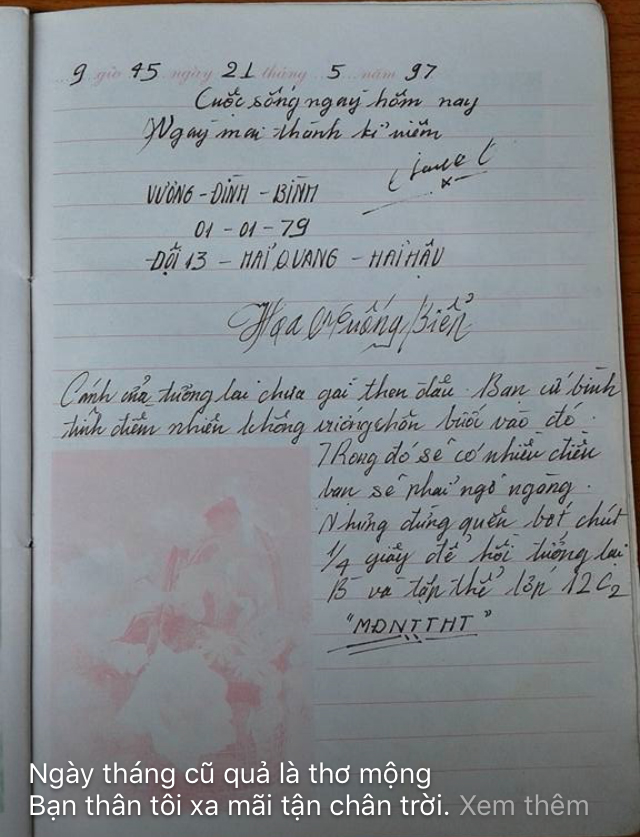 9 giờ 45 ngày 21 tháng 5 năm 97
Cuộc sống ngaỳ hôm nay
Ngaỳ mai thành kỉ niêm
VƯƠNG - ĐÌNH - BÌNH
01 - 01 - 79
ĐỘI 13 - HẢI QUANG - HẢI HẬU
Hoa Muống Biển
Cánh cửa tương lai chưa gaì then đâu. Bạn cứ bình
tĩnh điềm nhiên không vướng chân bước vào đó.
TRong đó sẽ có nhiều điều
bạn sẽ phaỉ ngỡ ngàng.
Nhưng đừng quên bớt chút
1/4 giây để hồi tưởng lại
B và tập thể lớp 12C2
"MĐNTTHT"
Ngày tháng cũ quả là thơ mộng
Bạn thân tôi xa mãi tận chân trời. Xem thêm